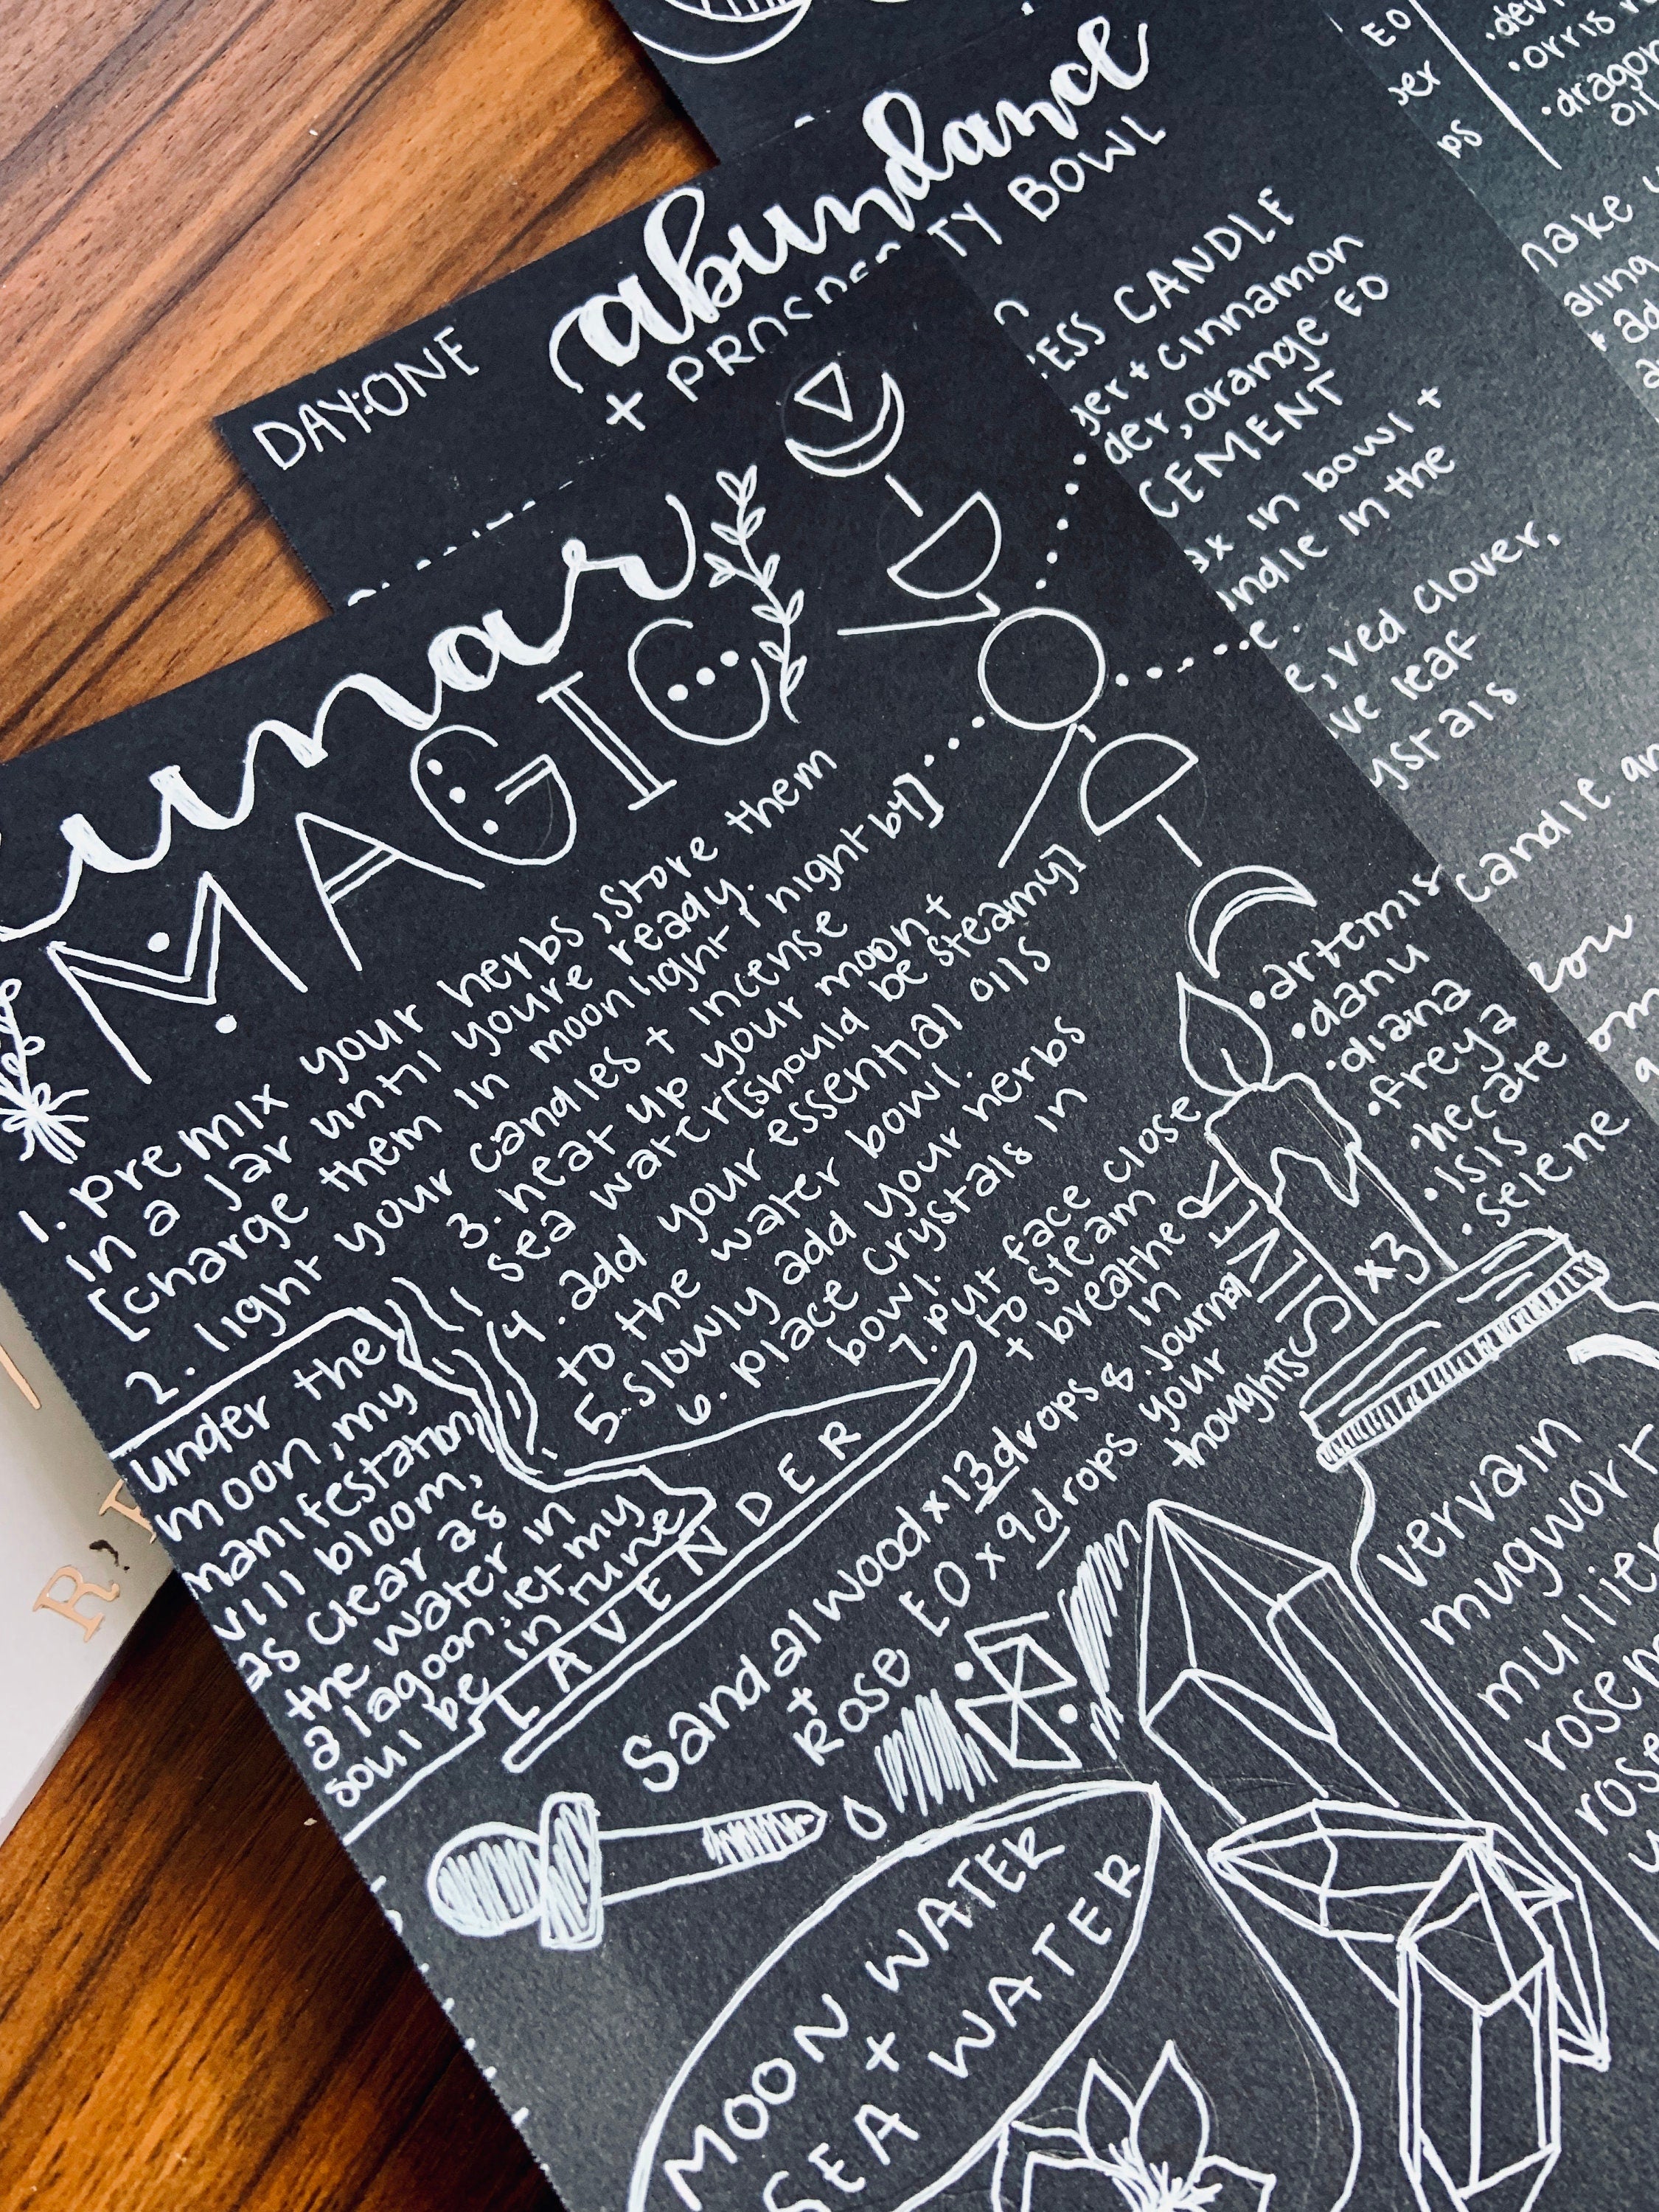 DAY:ONE
abundance
+ PROSPERITY BOWL
CANDLE
+ cinnamon
orange EO
in bowl +
in the
red clover,
leaf
candle
EO
orris
dragon
oil
make
lunar
MAGIC
1. pre mix your herbs, store them
in a jar until youre ready.
[charge them in moonlight 1 night by]
2. light your candles + incense
3. heat up your moon +
sea water [should be steamy]
4. add your essential oils
to the water bowl.
5. slowly add your herbs
6. place crystals in
bowl.
7. put face close
to steam
+ breathe
in
& journal
your
thoughts
under the
moon, my
manifestation
will bloom,
as clear as
the water in
a lagoon. let my
soul be in tune
LAVENDER
SILVER
x3
•artemis
•danu
•diana
•freya
•hecate
•isis
•selene
Sandalwood x 13 drops
+
Rose EO x 9 drops
vervain
mugwort
MOON WATER
+
SEA WATER
R,